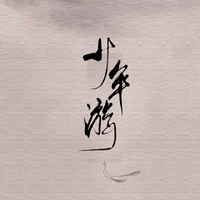 少年游